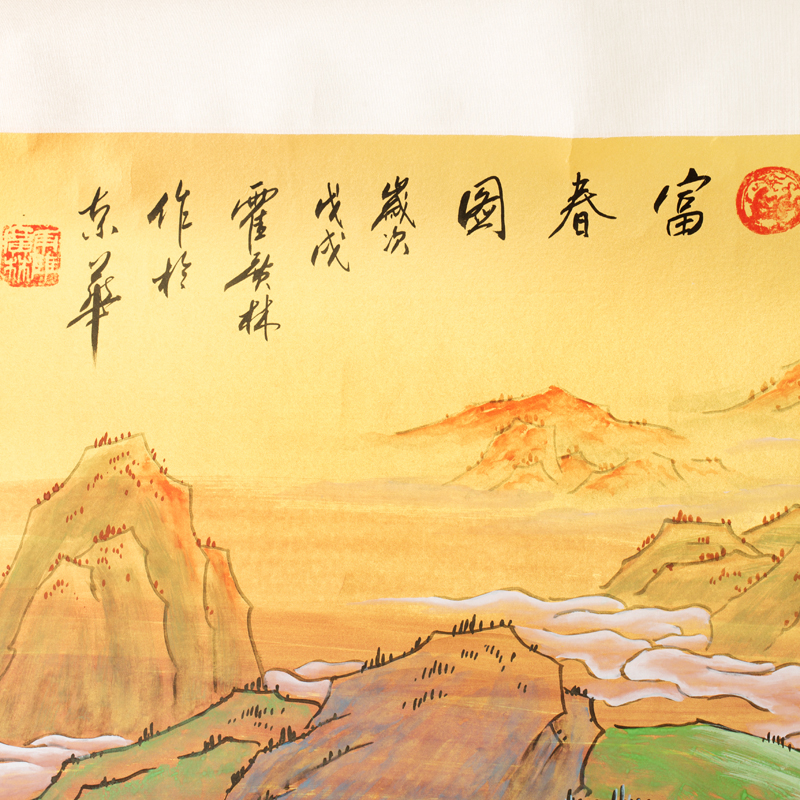 富春圖
歲次
戊戌
霍 林
作於
京華